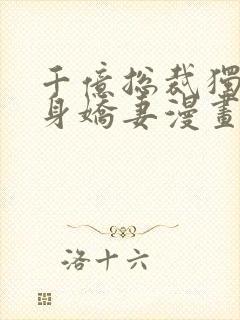 千億總裁獨
身嬌妻漫畫
洛十六